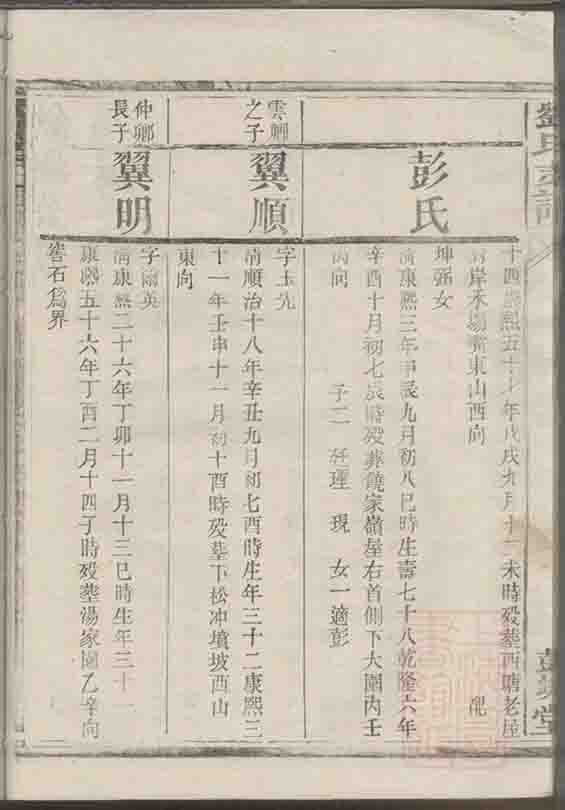 十四康熙五十七年戊戌九月十二未時殁葬西塘老屋
對岸木場嘴東山西向
彭氏
坤強女
清康熙三年甲辰九月初八巳時生壽七十八乾隆六年
辛酉十月初七辰時殁葬饒家嶺屋右首側下大園內壬
丙向
子二 理 現 女一適彭
雲卿
之子
翼順
字玉先
清順治十八年辛丑九月初七酉時生年三十二康熙三
十一年壬申十一月初十酉時殁墓下松冲墳坡西山
東向
仲卿
長子
翼明
字爾英
清康熙二十六年丁卯十一月十三巳時生年三十一
康熙五十六年丁酉二月十四丁時殁葬湯家園乙辛向
砦石爲界